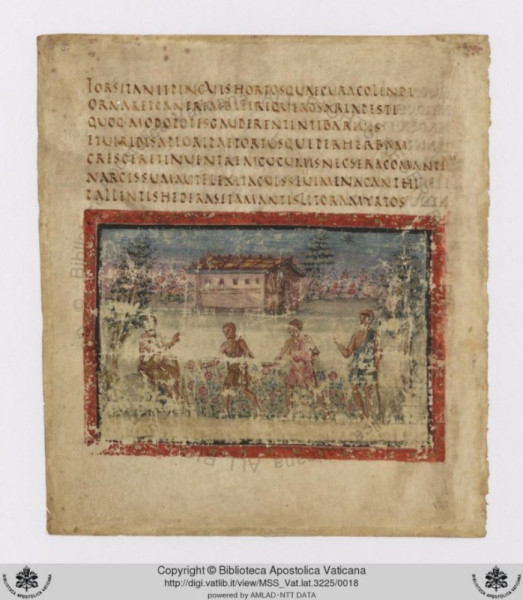 FORSITANETPINGVISHORTOSQVAECVRACOLENDI
ORNARETCANEREMBIFERIQVEROSARIAPESTI
QVOQ·MODOPOTISGAVDERENTINTIBARIVIS
ETVIRIDISAPIORIPAETORTOSQVEPERHERBAM
CRESCERETINVENTREMCVCVMISNECSERACOMANTE
NARCISSVMAVTFLEXITACVISSEVIMENACANTHI
PALLENTISHEDERASETAMANTISLITORAMYRTOS
Copyright © Biblioteca Apostolica Vaticana
http://digi.vatlib.it/view/MSS_Vat.lat.3225/0018
powered by AMLAD-NTT DATA